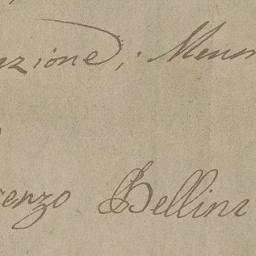 nzione; Mem
enzo Bellini